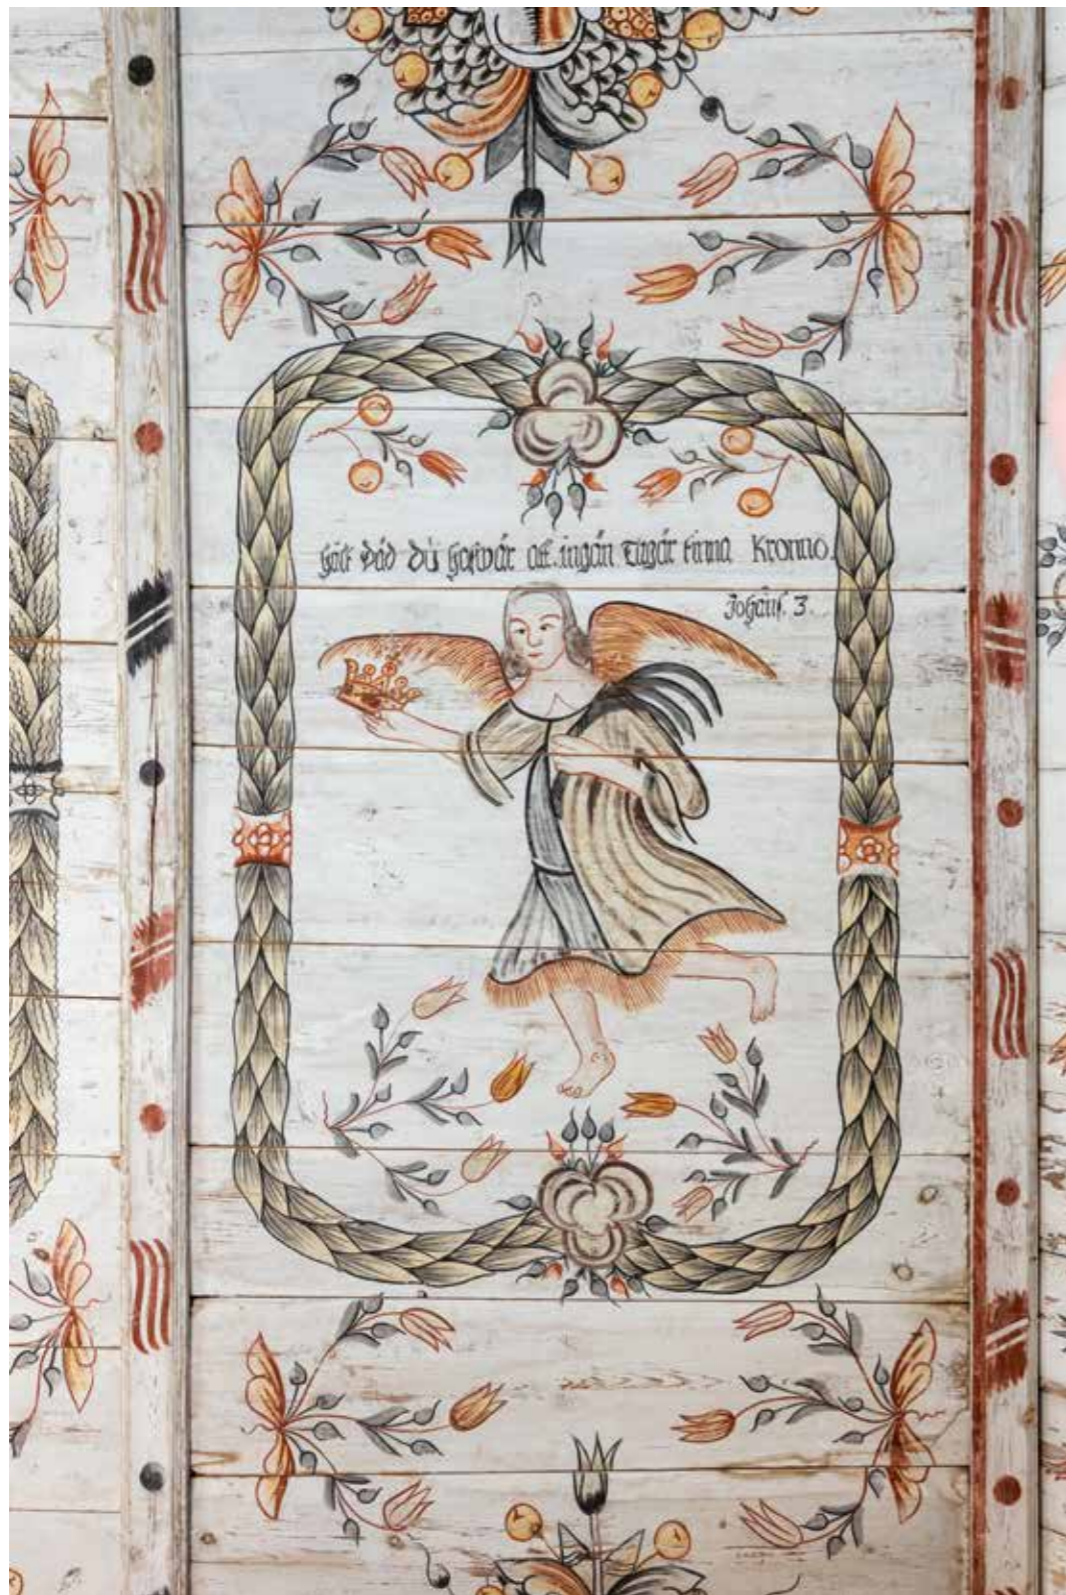 hält däd dů hafwär att ingän tagår tinna Kronno.
Johañs. 3.